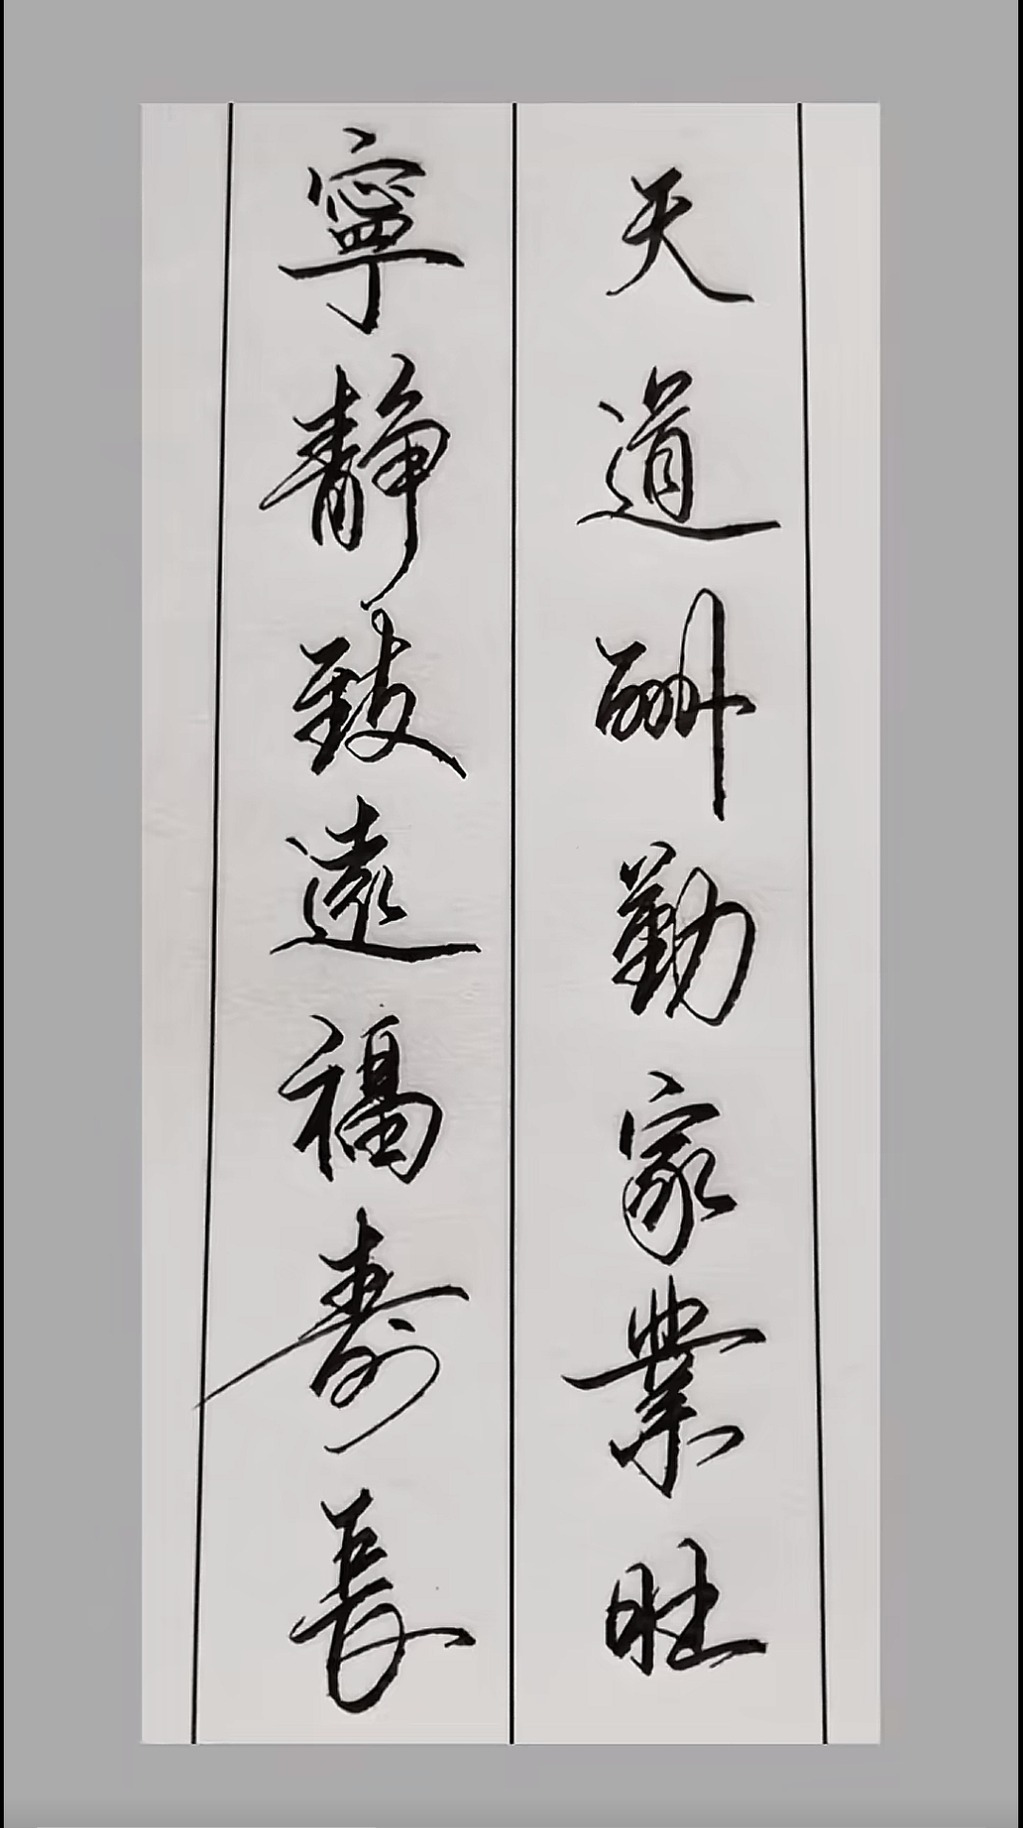 天道酬勤家業旺
寧靜致遠福壽長